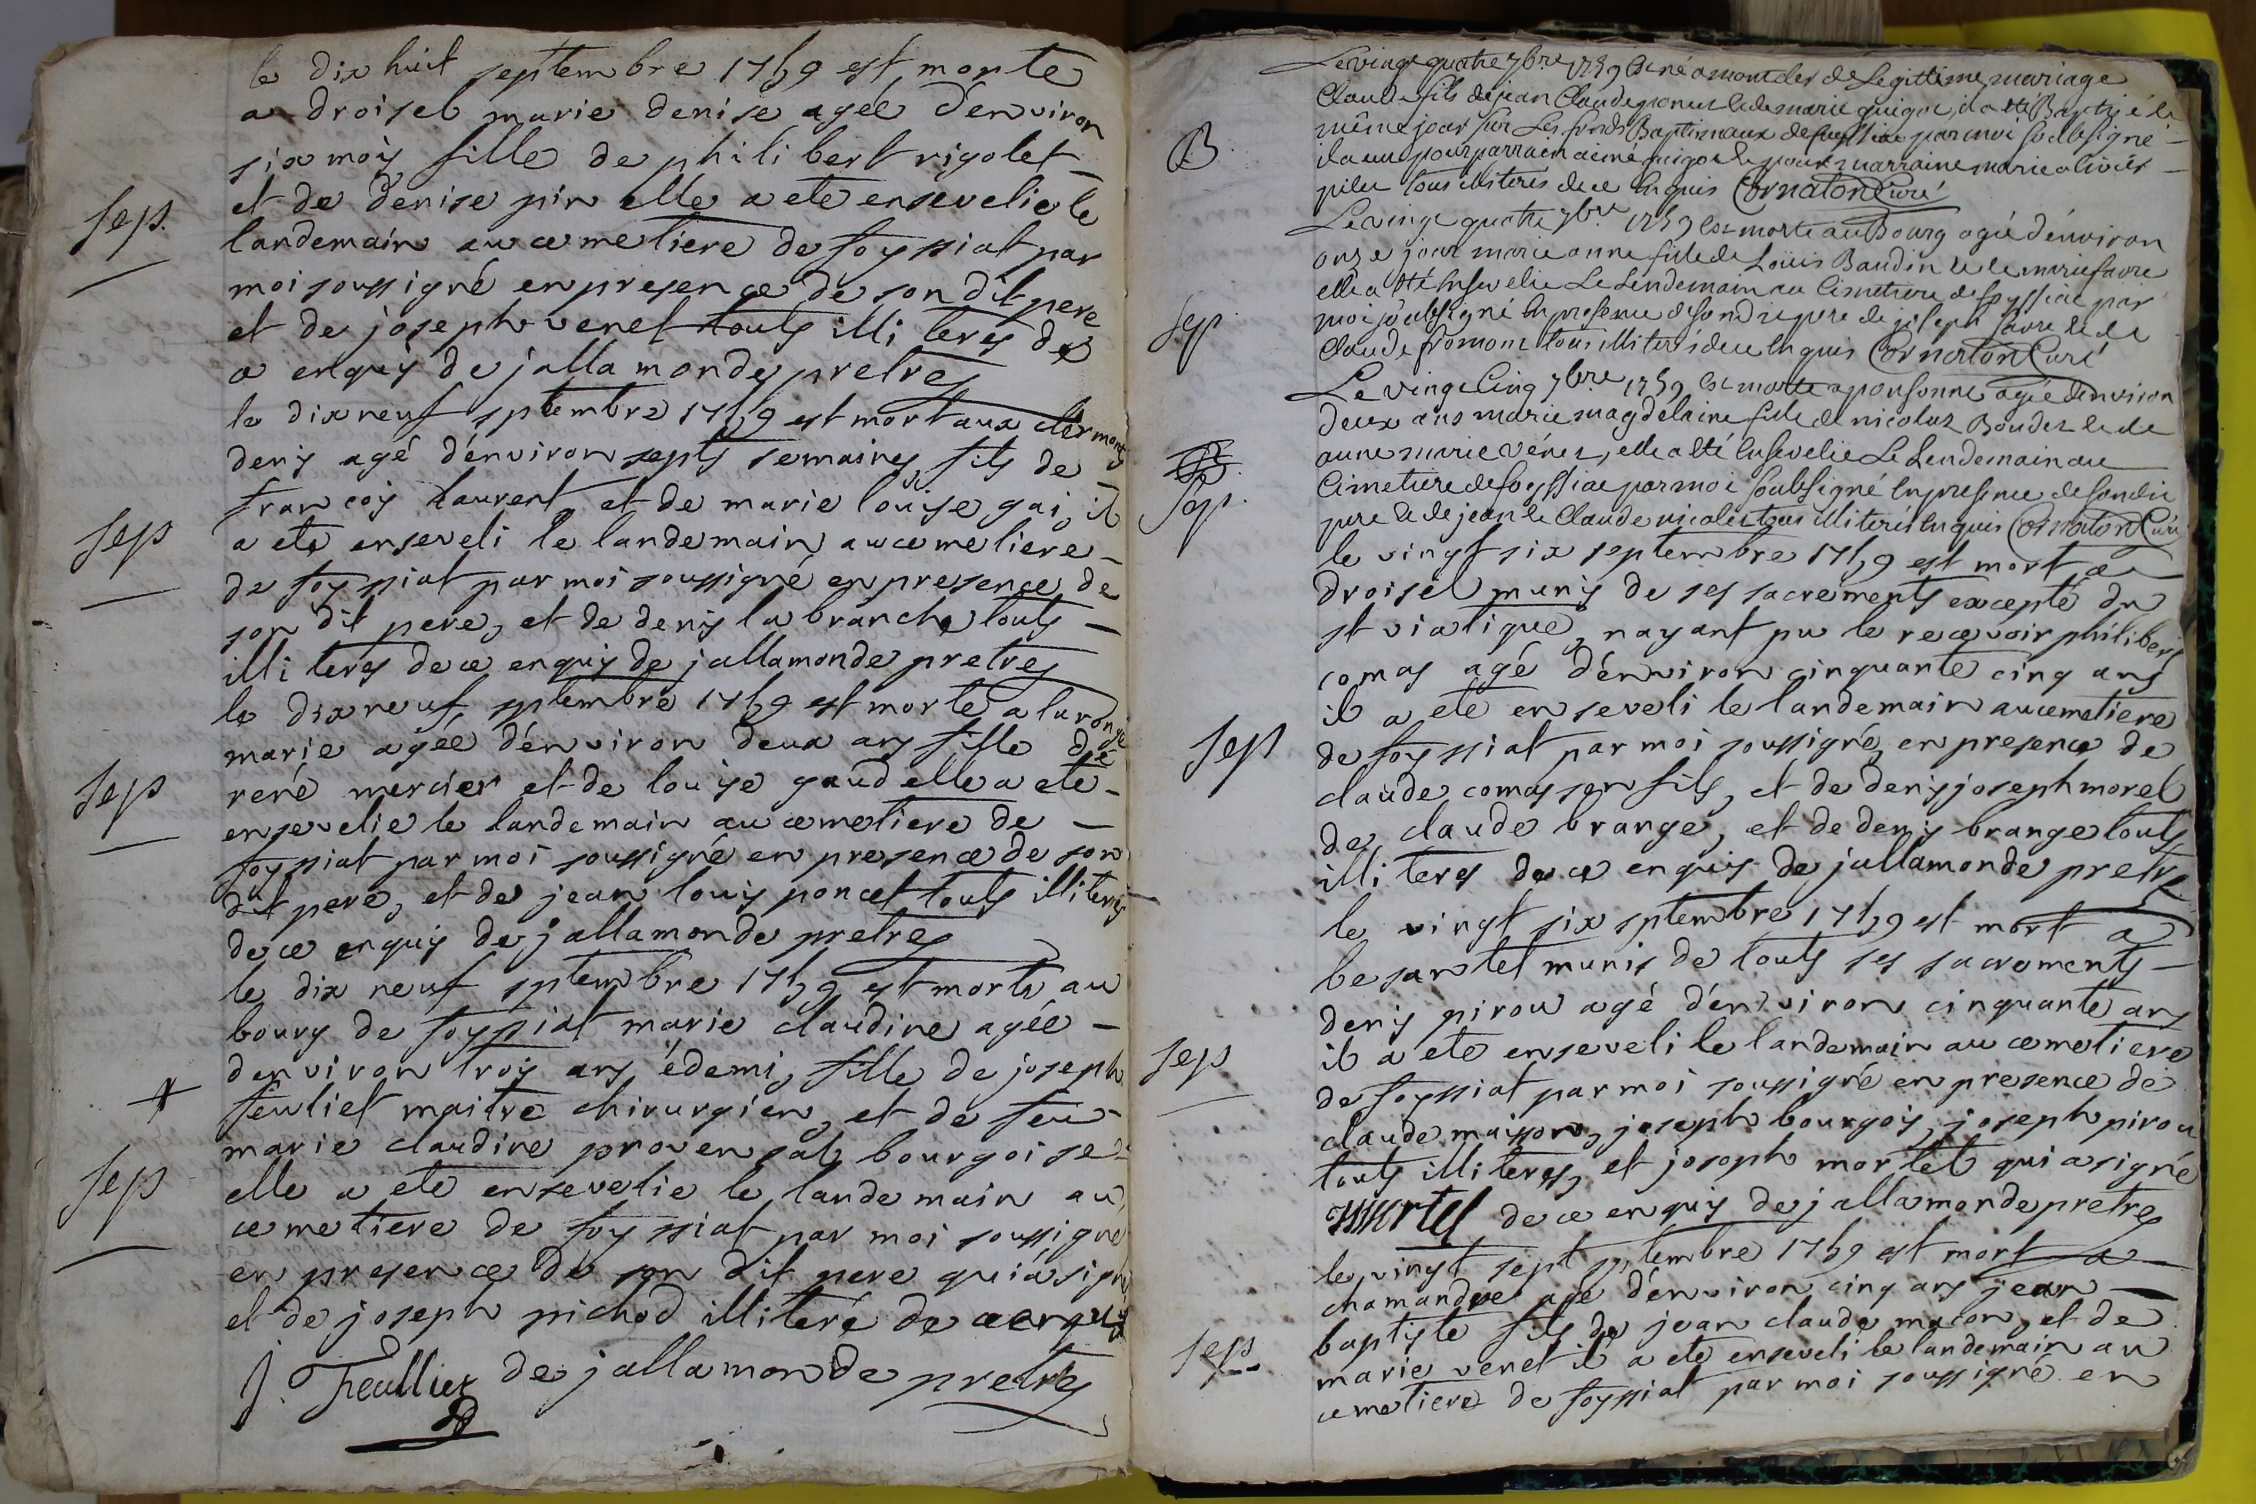 le dix huit septembre 1759 est morte
a droisel marie denise agée d'environ
six mois fille de philibert rigolet
et de denise pin elle a ete ensevelie le
Sep.
landemain au cemetiere de foyssiat par
moi soussigné en presence de son dit pere
et de joseph venet touts illiterés de
ce enquis de jallamonde pretre
le dix neuf sptembre 1759 est mort aux clermonts
denis agé d'environ septs semaines fils de
francois laurent et de marie louise gai, il
Sep
a ete enseveli le landemain au cemetiere
de foyssiat par moi soussigné en presence de
son dit pere, et de denis la branche touts
illiterés de ce enquis de jallamonde pretre
le dix neuf sptembre 1759 est morte a la ronge
marie agée d'environ deux ans fille de
Sep
rené mercier et de louise gaud elle a ete
ensevelie le landemain au cemetiere de
foyssiat par moi soussigné en presence de son
dit pere, et de jean louis poncet touts illiterés
de ce enquis de jallamonde pretre
le dix neuf sptembre 1759 est morte au
bourg de foyssiat marie claudine agée
d'environ trois ans édemi, fille de joseph
feuliet maitre chirurgien, et de feu
marie claudine provensal bourgoise
Sep
elle a ete ensevelie le landemain au
cemetiere de foyssiat par moi soussigné
en presence de son dit pere qui a signé
et de joseph pichod illiteré de ce enquis
J. Feullier de jallamonde pretre
Le vingt quatre 7bre 1759 est né a montcler de Legittime mariage
Claude fils de jean Claude et de marie guigue, il a été Baptisé le
B
même jour sur Les fonds Baptismaux de foyssiat par moi soubsigné
il a eu pour parrain aimé et pour marraine marie
tous illiterés de ce enquis Cornaton Curé
Le vingt quatre 7bre 1759 est morte au Bourg agée d'environ
onze jour marie anne fille de Loüis Baudin et de marie favre
elle a été Ensevelie Le Lendemain au Cimetiere de foyssiat par
Sep
moi soubsigné En presence de son dit pere de joseph favre et de
Claude fromont tous illiterés de ce Enquis Cornaton Curé
Le vingt Cinq 7bre 1759 est morte a ponsonne agée d'environ
deux ans marie magdelaine fille de nicolas Boudet et de
anne marie véner, elle a été Ensevelie Le Lendemain au
Sep.
Cimetiere de foyssiat par moi soubsigné En presence de son dit
pere et de jean et Claude nicolet tous illiterés Enquis Cornaton Curé
le vingt six septembre 1759 est mort a
droisel munis de ses sacrements excepté du
st viatique, nayant pu le recevoir philibert
comas agé d'environ cinquante cinq ans
il a ete enseveli le landemain au cemetiere
Sep
de foyssiat par moi soussigné, en presence de
claude comas son fils, et de denis joseph morel
de claude brange, et de denis brange touts
illiterés de ce enquis de jallamonde pretre
le vingt six sptembre 1759 est mort a
besantet munis de touts ses sacrements
denis pirou agé d'environ cinquante ans
il a ete enseveli le landemain au cemetiere
Sep
de foyssiat par moi soussigné en presence de
claude maisson, joseph bourgois, joseph pirou
touts illiterés, et joseph mortel qui a signé
mortel de ce enquis de jallamonde pretre
le vingt sept sptembre 1759 est mort a
chamandre agé d'environ cinq ans jean
baptiste fils de jean claude macon, et de
Sep
marie venet il a ete enseveli le landemain au
cemetiere de foyssiat par moi soussigné en